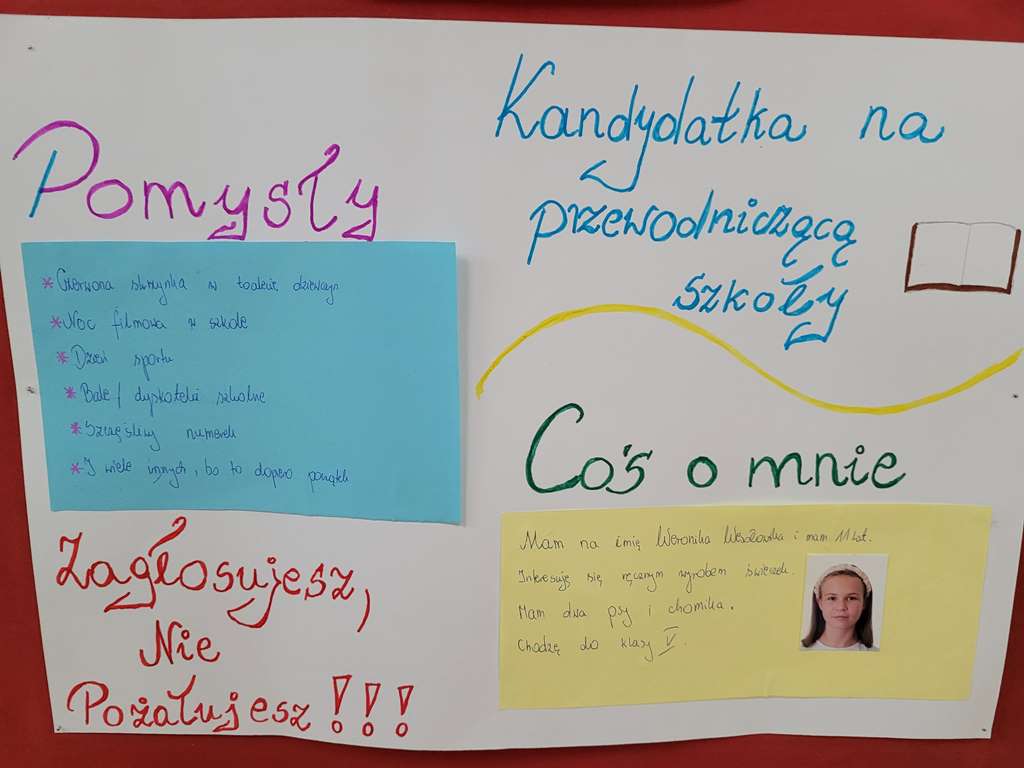 Pomysły
*Czerwona skrzynka w toalecie dziewczyn
*Noc filmowa w szkole
*Dzień sportu
*Bale/ dyskoteki szkolne
*Szczęśliwy numerek
*I wiele innych, bo to dopiero początek
Zagłosujesz,
Nie
Pożałujesz!!!
Kandydatka na
przewodniczącą
szkoły
Coś o mnie
Mam na imię Weronika Wesołowska i mam 11 lat.
Interesuję się ręcznym wyrobem świeczek.
Mam dwa psy i chomika.
Chodzę do klasy V.